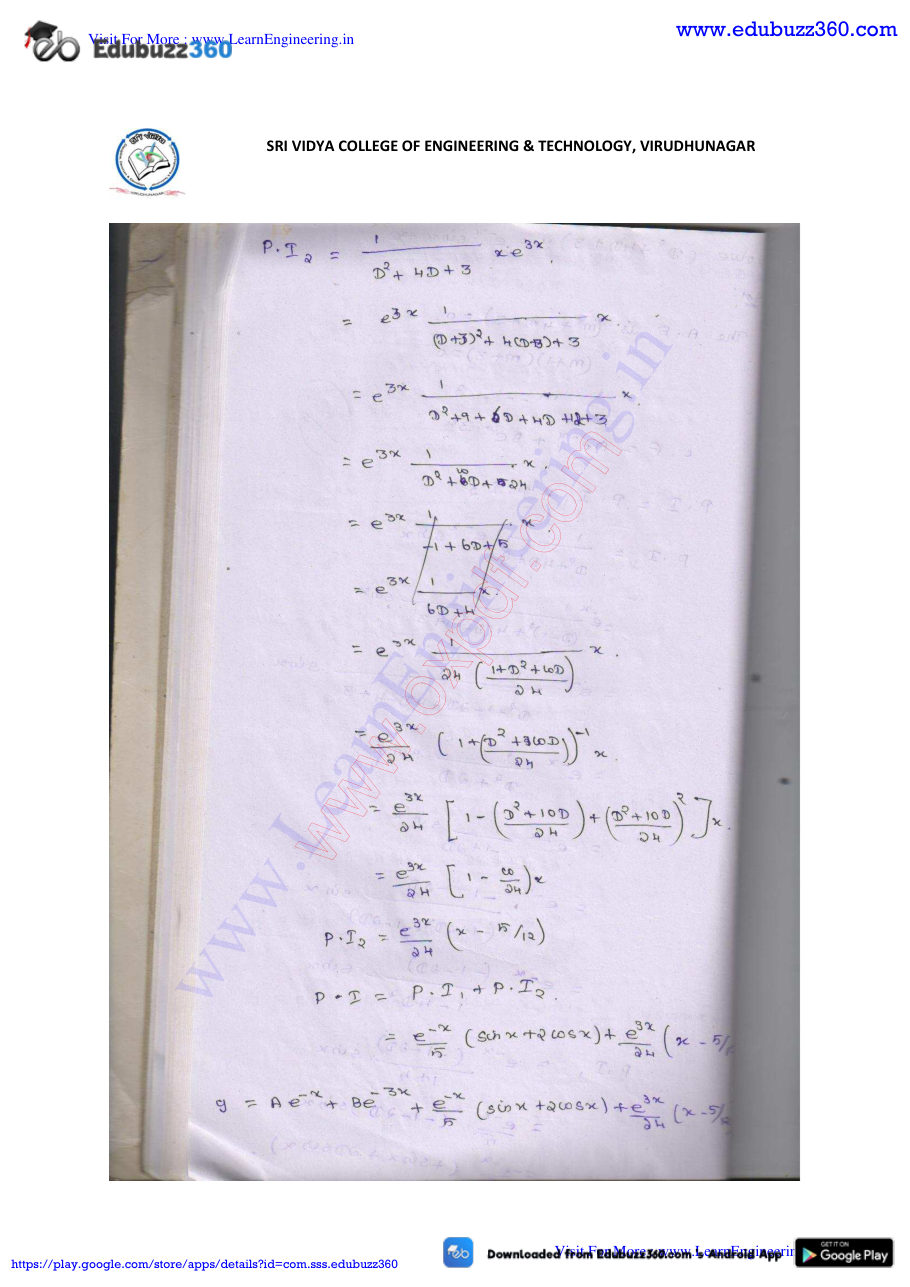 Visit For More : www.LearnEngineering.in
Edubuzz360
www.edubuzz360.com
SRI VIDYA COLLEGE OF ENGINEERING & TECHNOLOGY, VIRUDHUNAGAR
P.I₂ = 1/(D²+4D+3) xe^3x.
= e^3x 1/((D+3)²+4(D+3)+3) x
= e^3x 1/(D²+9+6D+4D+12+3) x.
= e^3x 1/(D²+10D+24) x.
= e^3x 1/(-1+6D+5) x
= e^3x 1/(6D+4) x.
= e^3x 1/(24((1+D²+10D)/24)) x.
= e^3x/24 (1+((D²+10D)/24))^-1 x.
= e^3x/24 [1-((D²+10D)/24)+((D²+10D)/24)²]x.
= e^3x/24 [1-10/24)x
P.I₂ = e^3x/24 (x-5/12)
P.I = P.I₁+P.I₂.
= e^-x/5 (sinx+2cosx)+e^3x/24 (x-5/
y = Ae^-x+Be^-3x+e^-x/5 (sinx+2cosx)+e^3x/24 (x-5/12
www.LearnEngineering.in
www.expdf.com
https://play.google.com/store/apps/details?id=com.sss.edubuzz360
Downloaded from Edubuzz360.com's Android App
Visit For More : www.LearnEngineerin
GET IT ON
Google Play